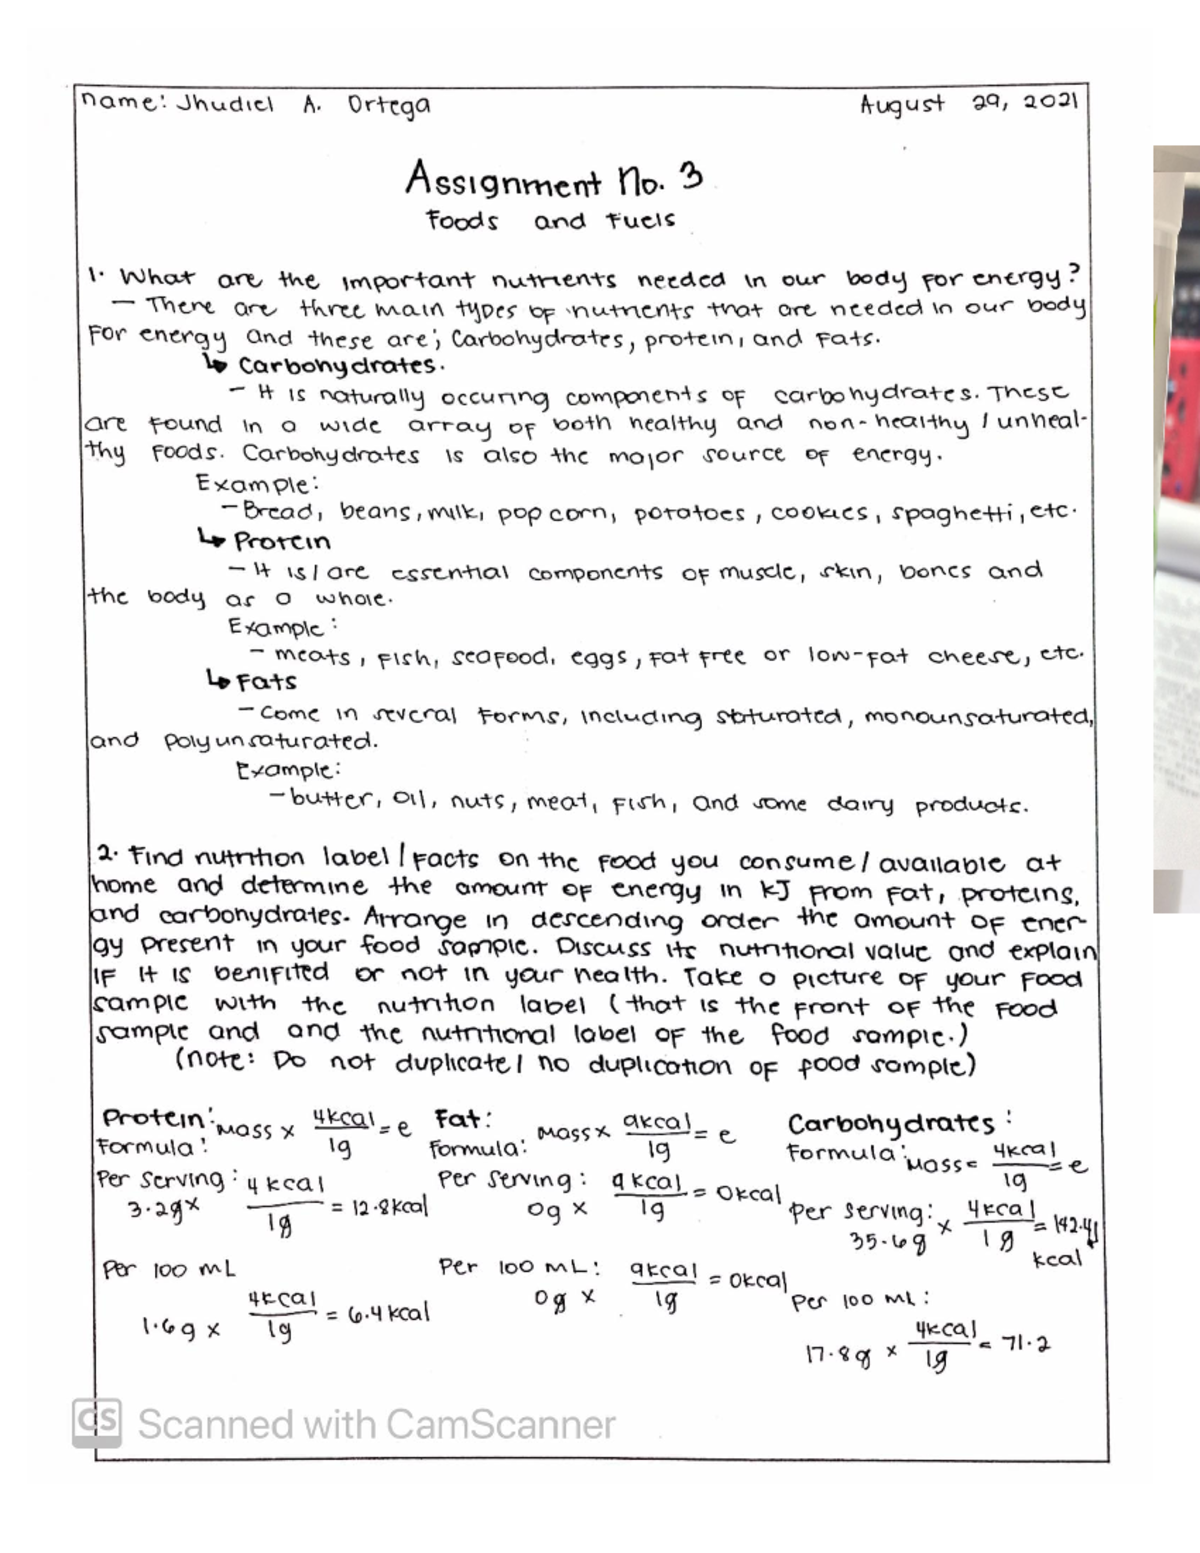 name: Jhudiel A. Ortega August 29, 2021
Assignment No. 3
Foods and Fuels
1. What are the important nutrients needed in our body for energy?
- There are three main types of nutrients that are needed in our body
For energy and these are; Carbohydrates, protein, and Fats.
↳ Carbohydrates.
- It is naturally occuring components of carbohydrates. These
are found in a wide array of both healthy and non-healthy / unheal-
thy Foods. Carbohydrates is also the major source of energy.
Example:
- Bread, beans, milk, popcorn, potatoes, cookies, spaghetti, etc.
↳ Protein
- It is / are essential components of muscle, skin, bones and
the body as a whole.
Example:
- meats, fish, seafood, eggs, fat free or low-fat cheese, etc.
↳ Fats
- Come in several forms, including saturated, monounsaturated,
and polyunsaturated.
Example:
- butter, oil, nuts, meat, fish, and some dairy products.
2. Find nutrition label / facts on the food you consume / available at
home and determine the amount of energy in kJ from fat, proteins,
and carbohydrates. Arrange in descending order the amount of ener-
gy present in your food sample. Discuss its nutritional value and explain
if it is benifited or not in your health. Take a picture of your food
sample with the nutrition label (that is the front of the food
sample and and the nutritional label of the food sample.)
(note: Do not duplicate / no duplication of food sample)
Protein:
Formula: mass x 4kcal/1g = e
Per Serving:
3.2g x 4kcal/1g = 12.8kcal
Per 100 mL
1.6g x 4kcal/1g = 6.4kcal
Fat:
Formula: mass x 9kcal/1g = e
Per serving:
0g x 9kcal/1g = 0kcal
Per 100 mL:
0g x 9kcal/1g = 0kcal
Carbohydrates:
Formula: mass = 4kcal/1g = e
per serving:
35.6g x 4kcal/1g = 142.4
kcal
Per 100 mL:
17.8g x 4kcal/1g = 71.2
CS Scanned with CamScanner